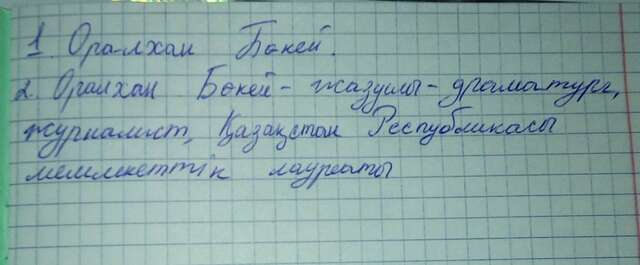 1. Оралхан Бөкей.
2. Оралхан Бөкей - жазушы - драматург,
журналист, Қазақстан Республикасы
мемлекеттік лауреаты